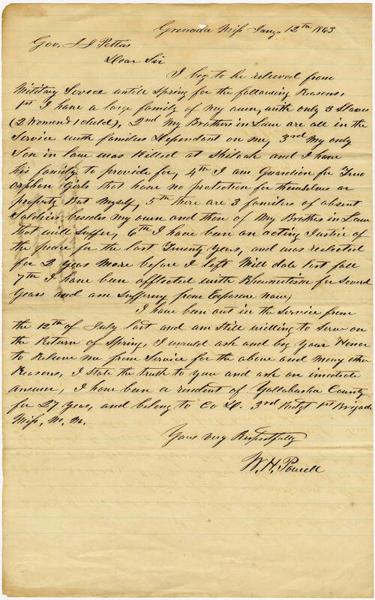 Grenada Miss Jany 12th 1863
Gov. J J Pettus
Dear Sir
I beg to be relieved from
Military Service until Spring for the following Reasons,
1st I have a large family of my own, with only 3 Slaves
(2 women & 1 child), 2nd My Brothers in Law are all in the
Service with families dependant on me, 3rd My only
Son in Law was Killed at Shiloah and I have
his family to provide for, 4th I am Guardian for Two
Orphan Girls that have no protection for themselves or
property But Myself, 5th there are 3 families of absent
Soldiers besides my own and them of My Brothers in Law
that will suffer, 6th I have been an acting Justice of
the peace for the last Twenty Years, and was reelected
for 2 Years More before I left. Will date last fall
7th I have been afflicted with Rheumatism for Several
Years and am Suffering from Exposure now,
I have been out in the Service from
the 10th of July last and am still willing to Serve on
the Return of Spring, I would ask and beg your Honor
to Relieve me from Service for the above and Many other
Reasons, I State the truth to you and ask an imediate
answer, I have been a resident of Yallabusha County
for 27 Years, and belong to Co 3rd Regt 1st Brigade
Miss, M. M.
Yours very Respectfully
W. H. Powell